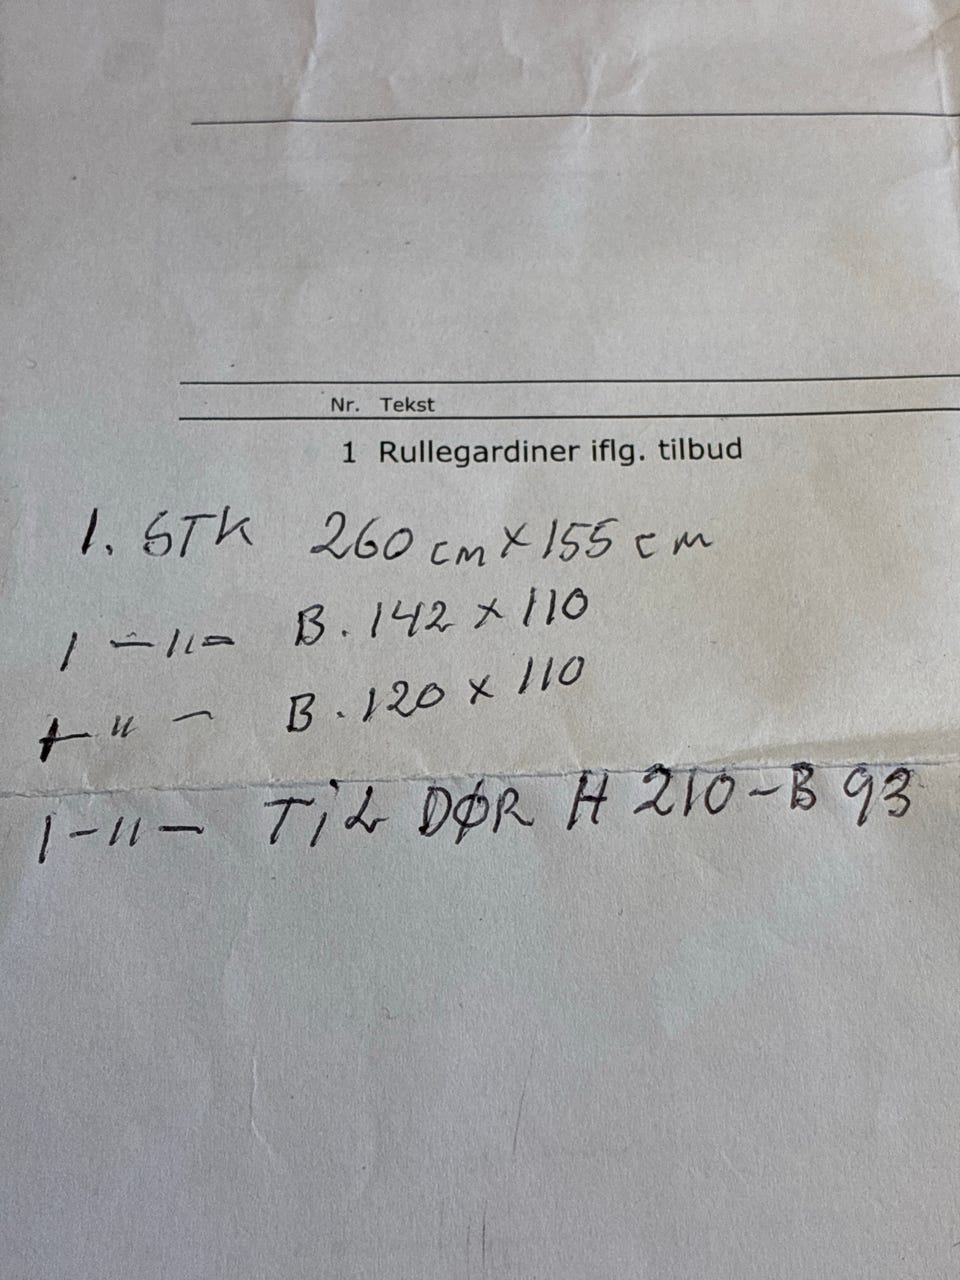 Nr. Tekst
1 Rullegardiner iflg. tilbud
1. STK 260 cm x 155 cm
1 -"- B. 142 x 110
1 -"- B. 120 x 110
1 -"- TiL DØR H 210 - B 93